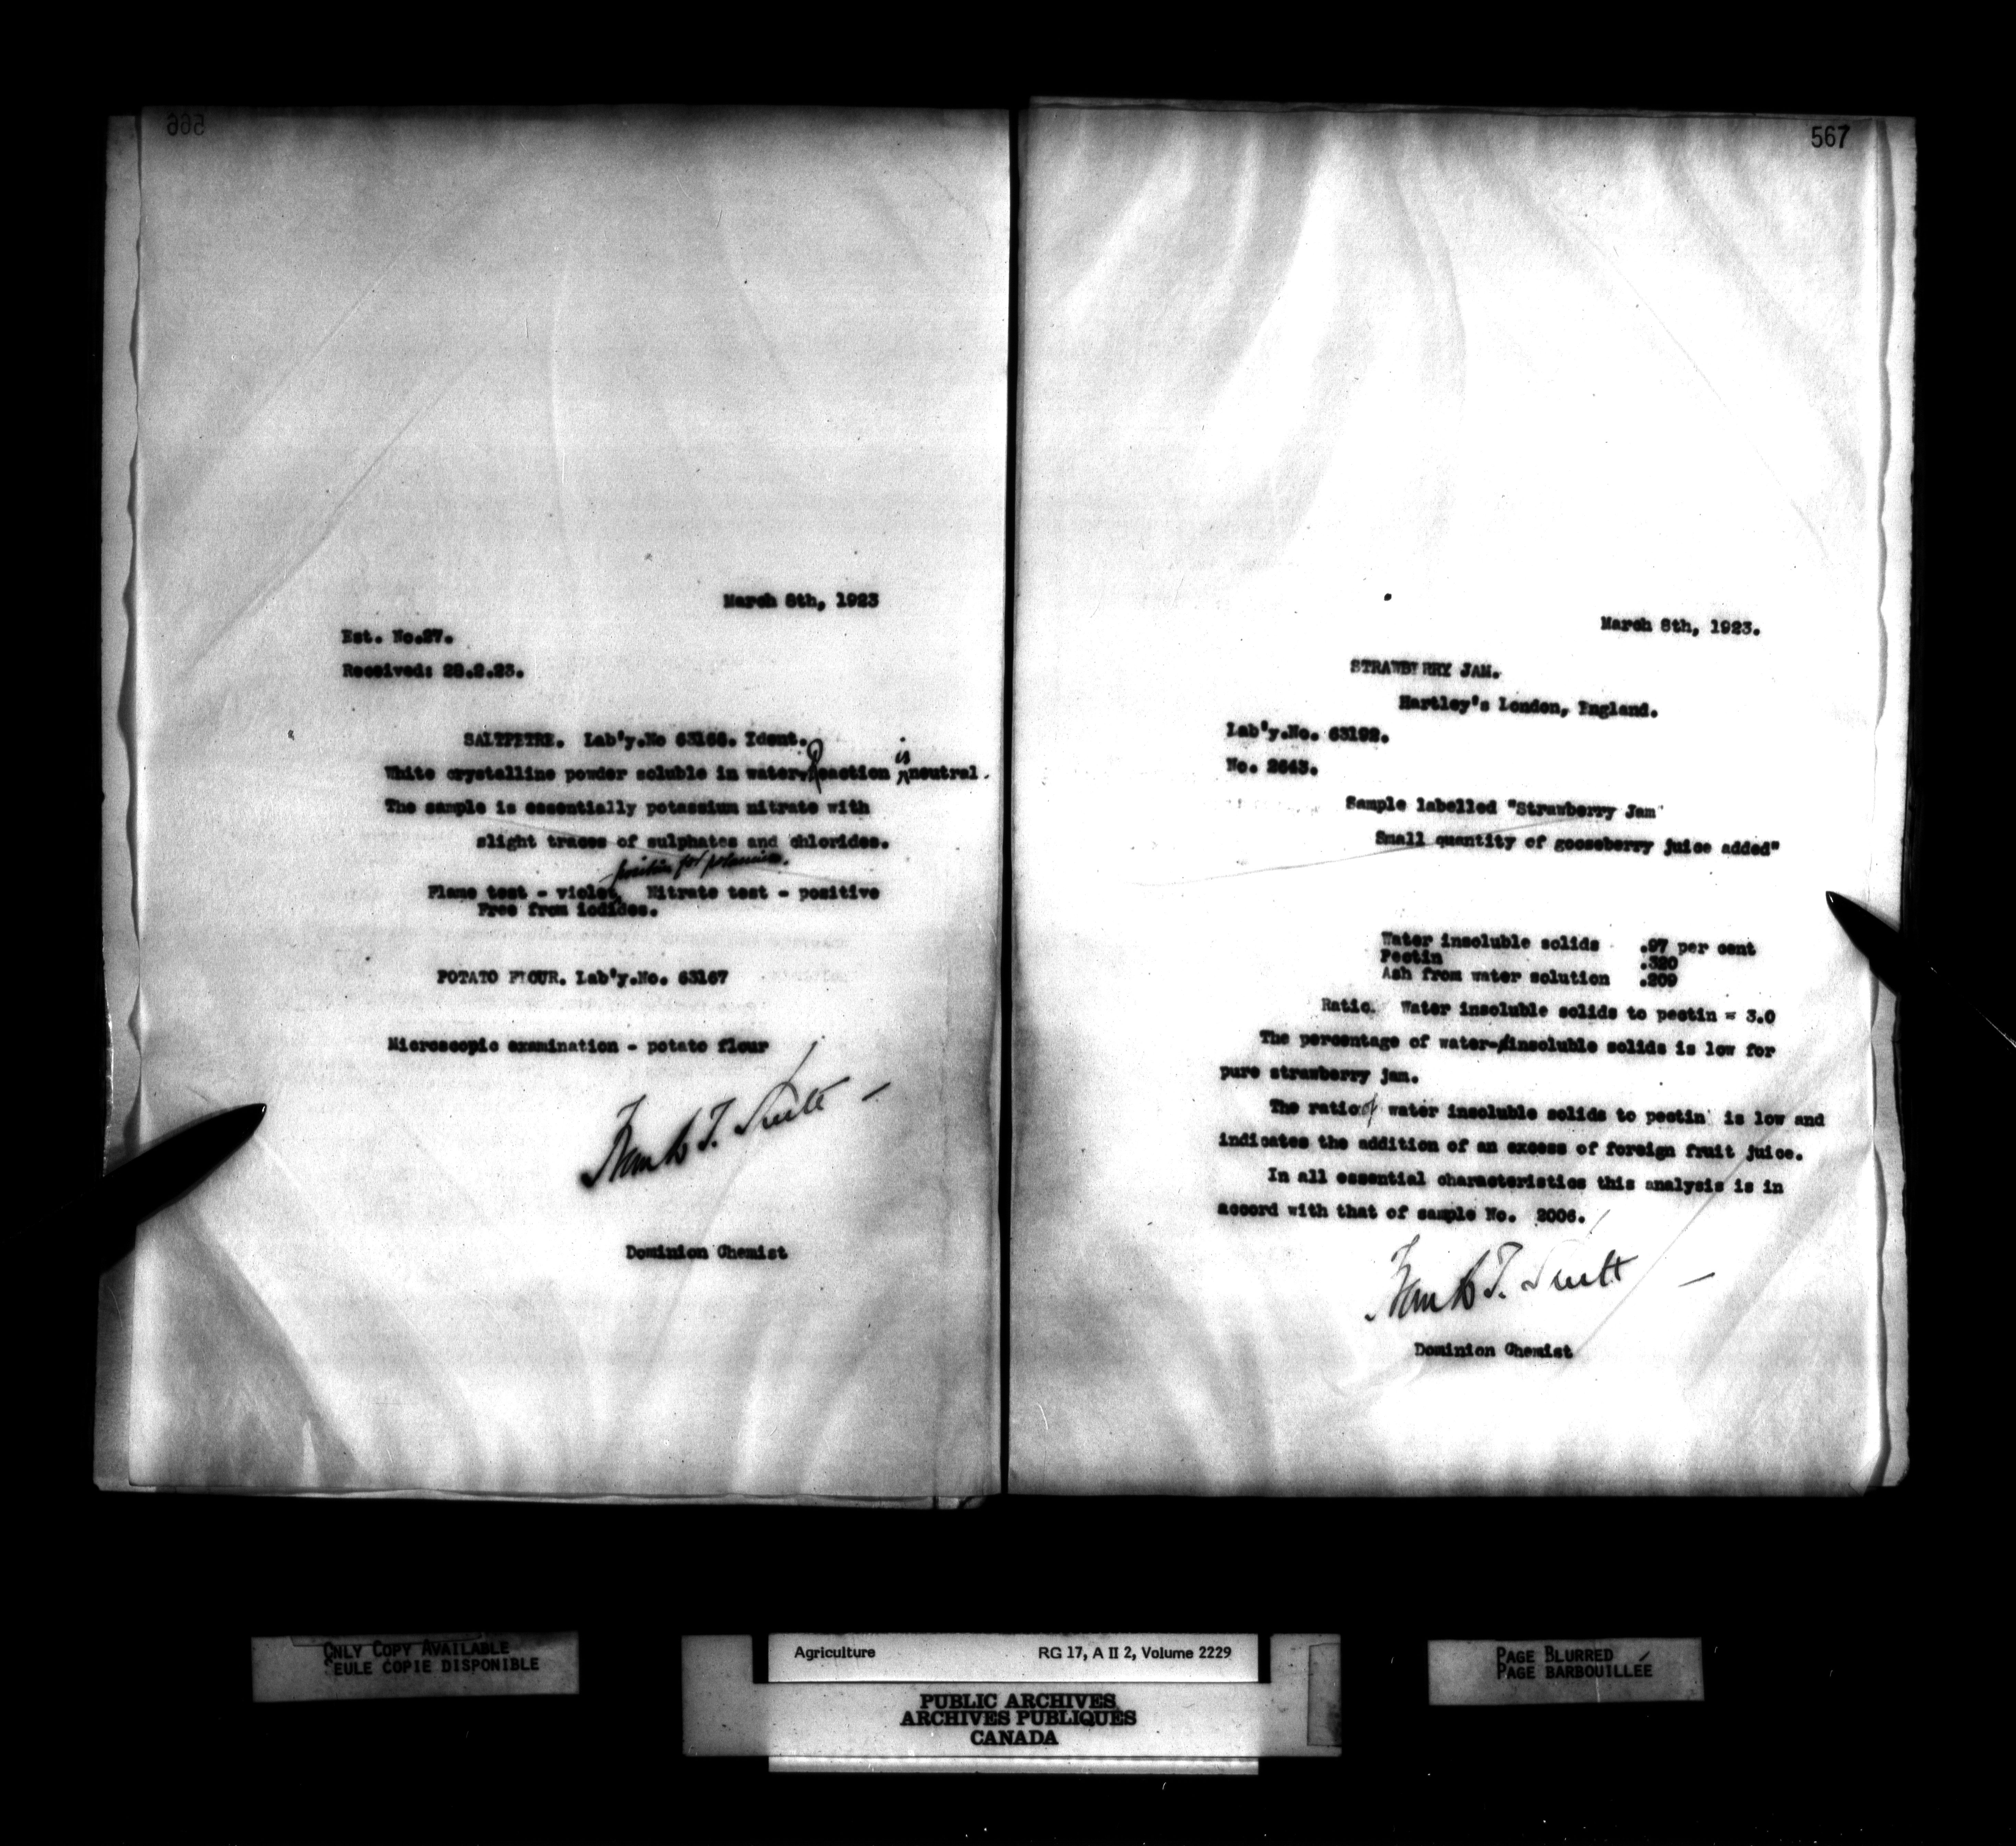 566
March 8th, 1923
Est. No.27.
Received: 28.2.23.
SALTPETRE. Lab'y.No 63166. Ident.
White crystalline powder soluble in water. Reaction is neutral.
The sample is essentially potassium nitrate with
slight traces of sulphates and chlorides.
positive for potassium.
Flame test - violet, Nitrate test - positive
Free from iodides.
POTATO FLOUR. Lab'y.No. 63167
Microscopic examination - potato flour
Frank T. Shutt
Dominion Chemist
567
March 8th, 1923.
STRAWBERRY JAM.
Hartley's London, England.
Lab'y.No. 63192.
No. 2643.
Sample labelled "Strawberry Jam
Small quantity of gooseberry juice added"
Water insoluble solids .97 per cent
Pectin .320
Ash from water solution .209
Ratio. Water insoluble solids to pectin = 3.0
The percentage of water-insoluble solids is low for
pure strawberry jam.
The ratio of water insoluble solids to pectin is low and
indicates the addition of an excess of foreign fruit juice.
In all essential characteristics this analysis is in
accord with that of sample No. 2006.
Frank T. Shutt
Dominion Chemist
ONLY COPY AVAILABLE
SEULE COPIE DISPONIBLE
Agriculture RG 17, A II 2, Volume 2229
PUBLIC ARCHIVES
ARCHIVES PUBLIQUES
CANADA
PAGE BLURRED
PAGE BARBOUILLÉE